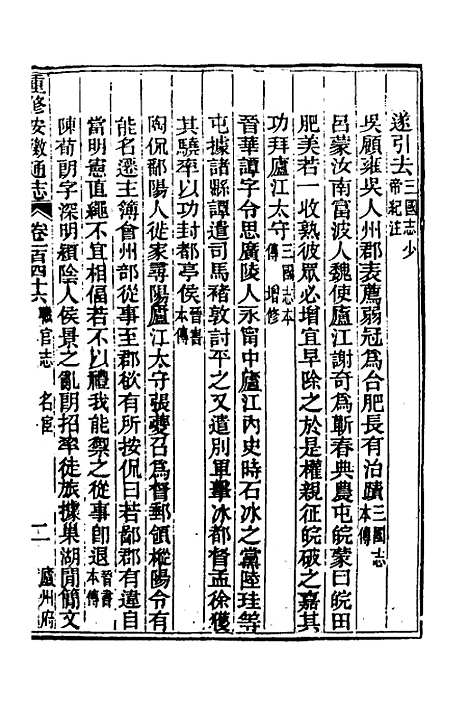 遂引去三國志少帝紀注
吳顧雍吳人州郡表薦弱冠爲合肥長有治蹟三國志本傳
呂蒙汝南富波人魏使廬江謝奇爲蘄春典農屯皖蒙曰皖田
肥美若一收熟彼眾必增宜早除之於是權親征皖破之嘉其
功拜廬江太守三國志本傳增修
晉華譚字令思廣陵人永甯中廬江內史時石冰之黨陸珪等
屯據諸縣譚遣司馬褚敦討平之又遣別軍擊冰都督孟徐獲
其驍率以功封都亭侯晉書本傳
陶侃鄱陽人徙家尋陽廬江太守張夔召爲督郵領樅陽令有
能名遷主簿會州部從事至郡欲有所按侃曰若鄙郡有違自
當明憲直繩不宜相偪若不以禮我能禦之從事卽退晉書本傳
陳荀朗字深明潁陰人侯景之亂朗招率徒旅據巢湖間簡文
重修安徽通志 卷一百四十六 職官志 名宦 二 廬州府